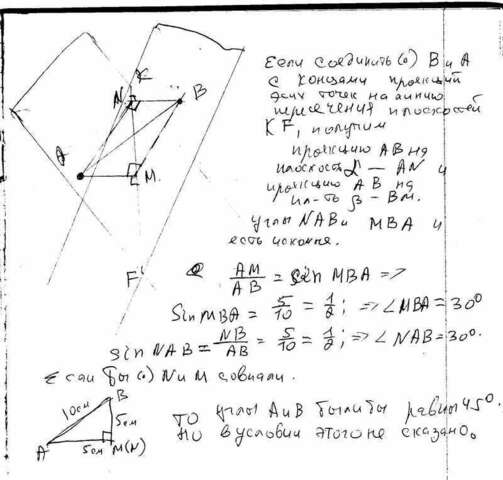 Если соединить (·) B и A
с концами проекций
этих точек на линию
пересечения плоскостей
KF, получим
проекцию AB на
плоскость α — AN и
проекцию AB на
пл-ть β - BM.
углы NAB и MBA и
есть искомые.
K
N
B
A
M
F
AM/AB = sin MBA =>
Sin MBA = 5/10 = 1/2; => ∠MBA = 30°
sin NAB = NB/AB = 5/10 = 1/2; => ∠NAB = 30°.
Если бы (·) N и M совпали.
B
10см
5см
A
5см
M(N)
то углы A и B были бы равны 45°.
Но в условии этого не сказано.